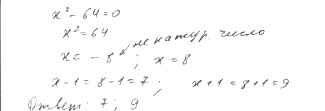 x² - 64 = 0
x² = 64 не натур. число
x = - 8 ; x = 8
x - 1 = 8 - 1 = 7 ; x + 1 = 8 + 1 = 9
Ответ: 7 ; 9